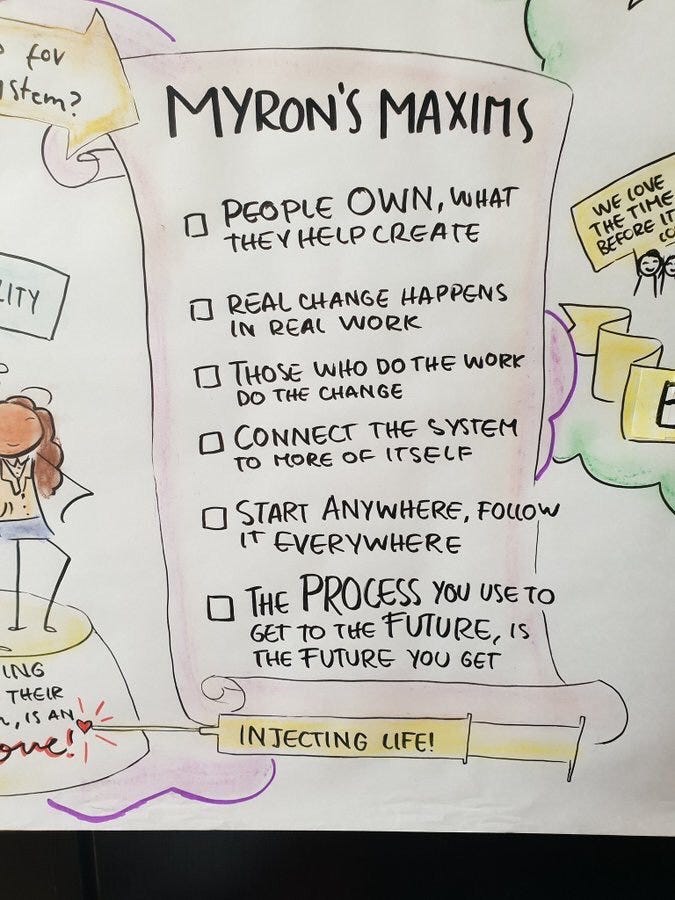 for
stem?
MYRON'S MAXIMS
PEOPLE OWN, WHAT
THEY HELP CREATE
REAL CHANGE HAPPENS
IN REAL WORK
THOSE WHO DO THE WORK
DO THE CHANGE
CONNECT THE SYSTEM
TO MORE OF ITSELF
START ANYWHERE, FOLLOW
IT EVERYWHERE
THE PROCESS YOU USE TO
GET TO THE FUTURE, IS
THE FUTURE YOU GET
INJECTING LIFE!
LITY
ING
THEIR
, IS AN
ove!
WE LOVE
THE TIME
BEFORE IT
CO
E